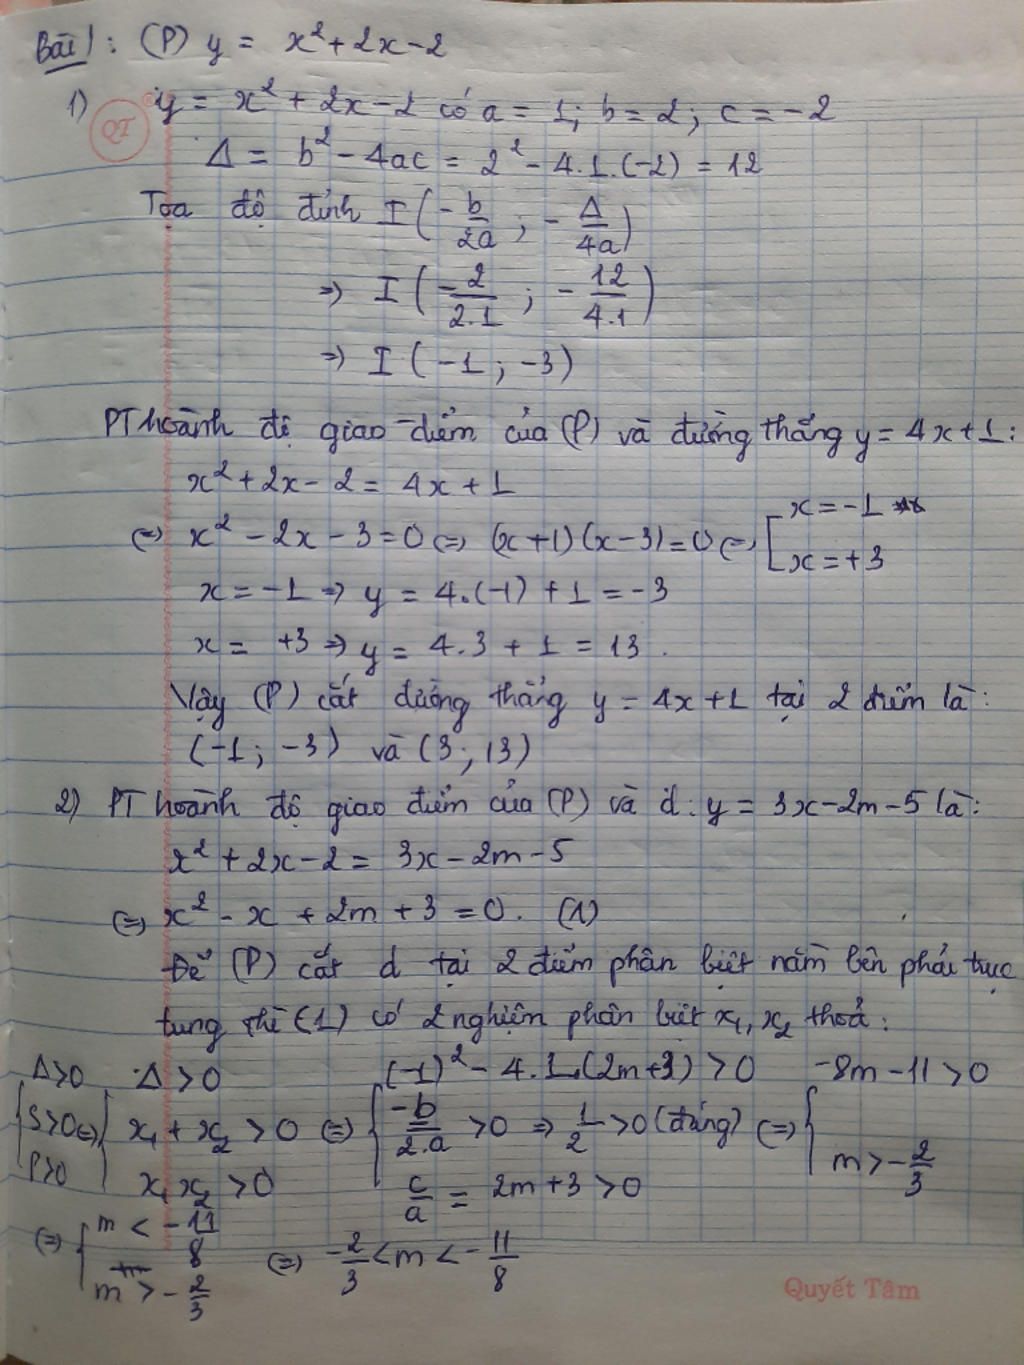 Bài 1: (P) y = x² + 2x - 2
1) y = x² + 2x - 2 có a = 1; b = 2; c = -2
QT
Δ = b² - 4ac = 2² - 4.1.(-2) = 12
Tọa độ đỉnh I(-b/2a ; -Δ/4a)
⇒ I(-2/2.1 ; -12/4.1)
⇒ I(-1 ; -3)
PT hoành độ giao điểm của (P) và đường thẳng y = 4x + 1:
x² + 2x - 2 = 4x + 1
⇔ x² - 2x - 3 = 0 ⇔ (x + 1)(x - 3) = 0 ⇔ [x = -1 ; x = +3
x = -1 ⇒ y = 4.(-1) + 1 = -3
x = +3 ⇒ y = 4.3 + 1 = 13.
Vậy (P) cắt đường thẳng y = 4x + 1 tại 2 điểm là:
(-1; -3) và (3; 13)
2) PT hoành độ giao điểm của (P) và d: y = 3x - 2m - 5 là:
x² + 2x - 2 = 3x - 2m - 5
⇔ x² - x + 2m + 3 = 0. (1)
Để (P) cắt d tại 2 điểm phân biệt nằm bên phải trục
tung thì (1) có 2 nghiệm phân biệt x₁, x₂ thoả:
Δ>0 Δ > 0 (-1)² - 4.1.(2m+3) > 0 -8m - 11 > 0
{S>0 ⇔ { x₁ + x₂ > 0 ⇔ { -b/2.a > 0 ⇒ 1/2 > 0 (đúng) ⇔ {
P>0 x₁ x₂ > 0 c/a = 2m + 3 > 0 m > -2/3
⇔ { m < -11/8 ; m > -2/3 ⇔ -2/3 < m < -11/8
Quyết Tâm